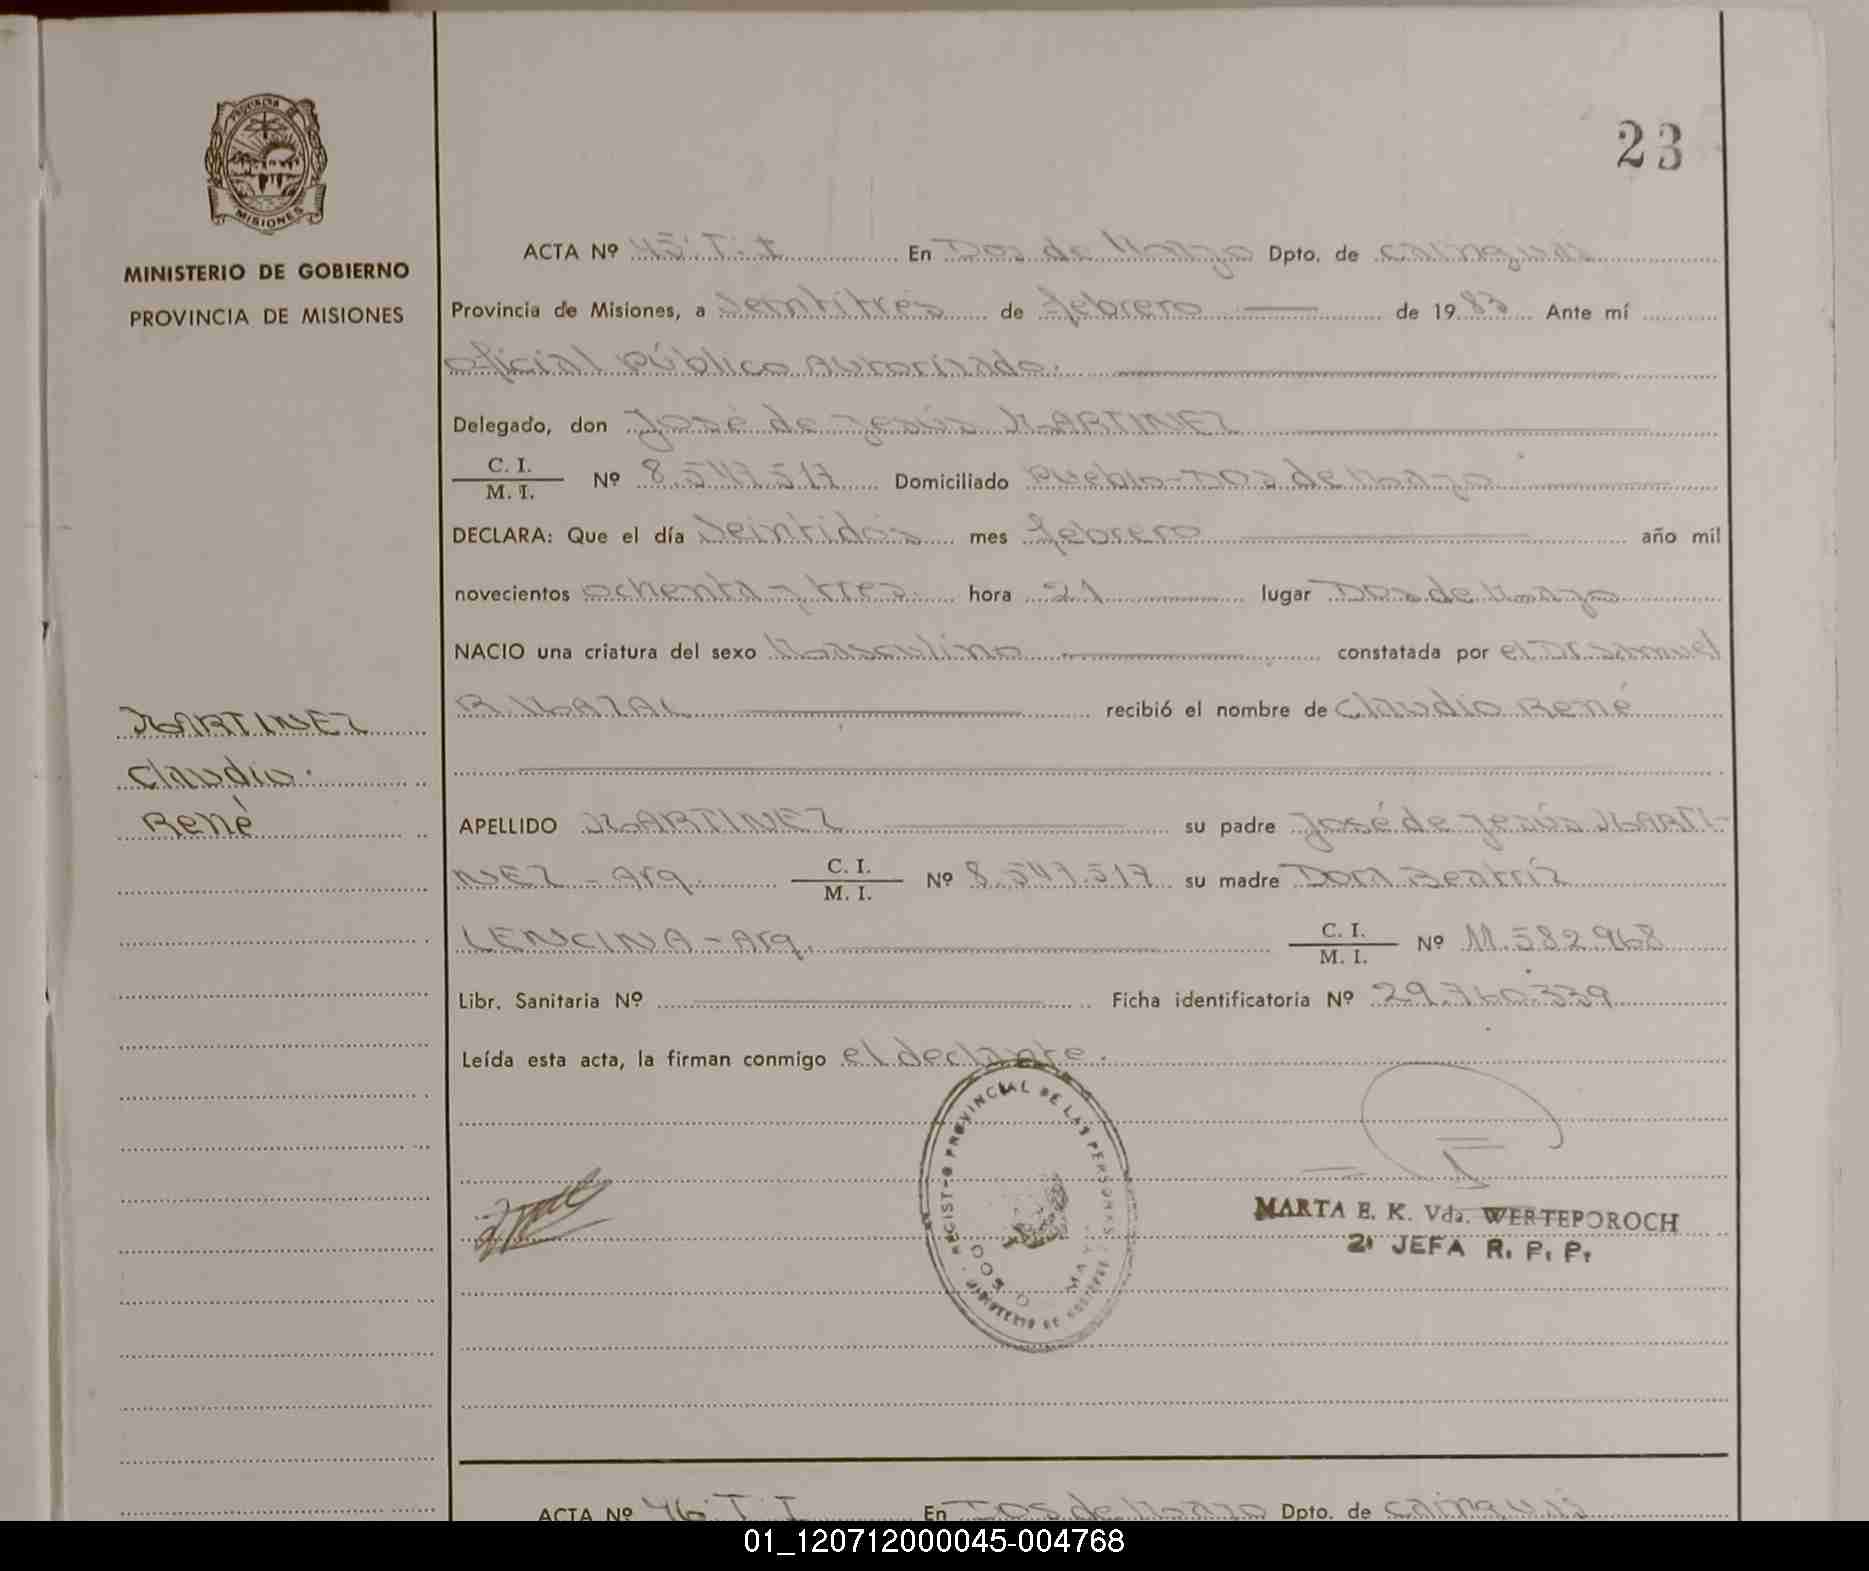 PROVINCIA DE
MISIONES
MINISTERIO DE GOBIERNO
PROVINCIA DE MISIONES
23
ACTA Nº 45·T·I En Dos de Marzo Dpto. de Cainguás
Provincia de Misiones, a Veintitres de febrero de 1983 Ante mí
Oficial Público Autorizado.
Delegado, don José de Jesús MARTINEZ
C. I.
M. I. Nº 8.547.517 Domiciliado Pueblo-Dos de Marzo
DECLARA: Que el día Veintidós mes febrero año mil
novecientos ochenta y tres. hora 21 lugar Dos de Marzo
NACIO una criatura del sexo Masculino constatada por el Dr Samuel
R. MAZAL recibió el nombre de Claudio René
MARTINEZ
Claudio.
René
APELLIDO MARTINEZ su padre José de Jesús MARTI-
NEZ - Arg. C. I.
M. I. Nº 8.547.517 su madre Dora Beatríz
LENCINA - Arg. C. I.
M. I. Nº 11.582.968
Libr. Sanitaria Nº Ficha identificatoria Nº 29.760.339
Leída esta acta, la firman conmigo el declante.
PROVINCIAL DE LAS PERSONAS
MARTA E. K. Vda. WERTEPOROCH
2ª JEFA R. P. P.
ACTA Nº 46·T·I En Dos de Marzo Dpto. de Cainguás
01_120712000045-004768